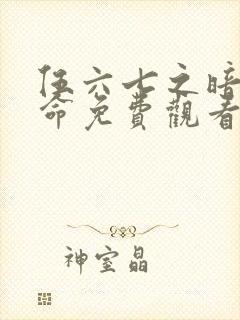 伍六七之暗
命免費觀看
神室晶